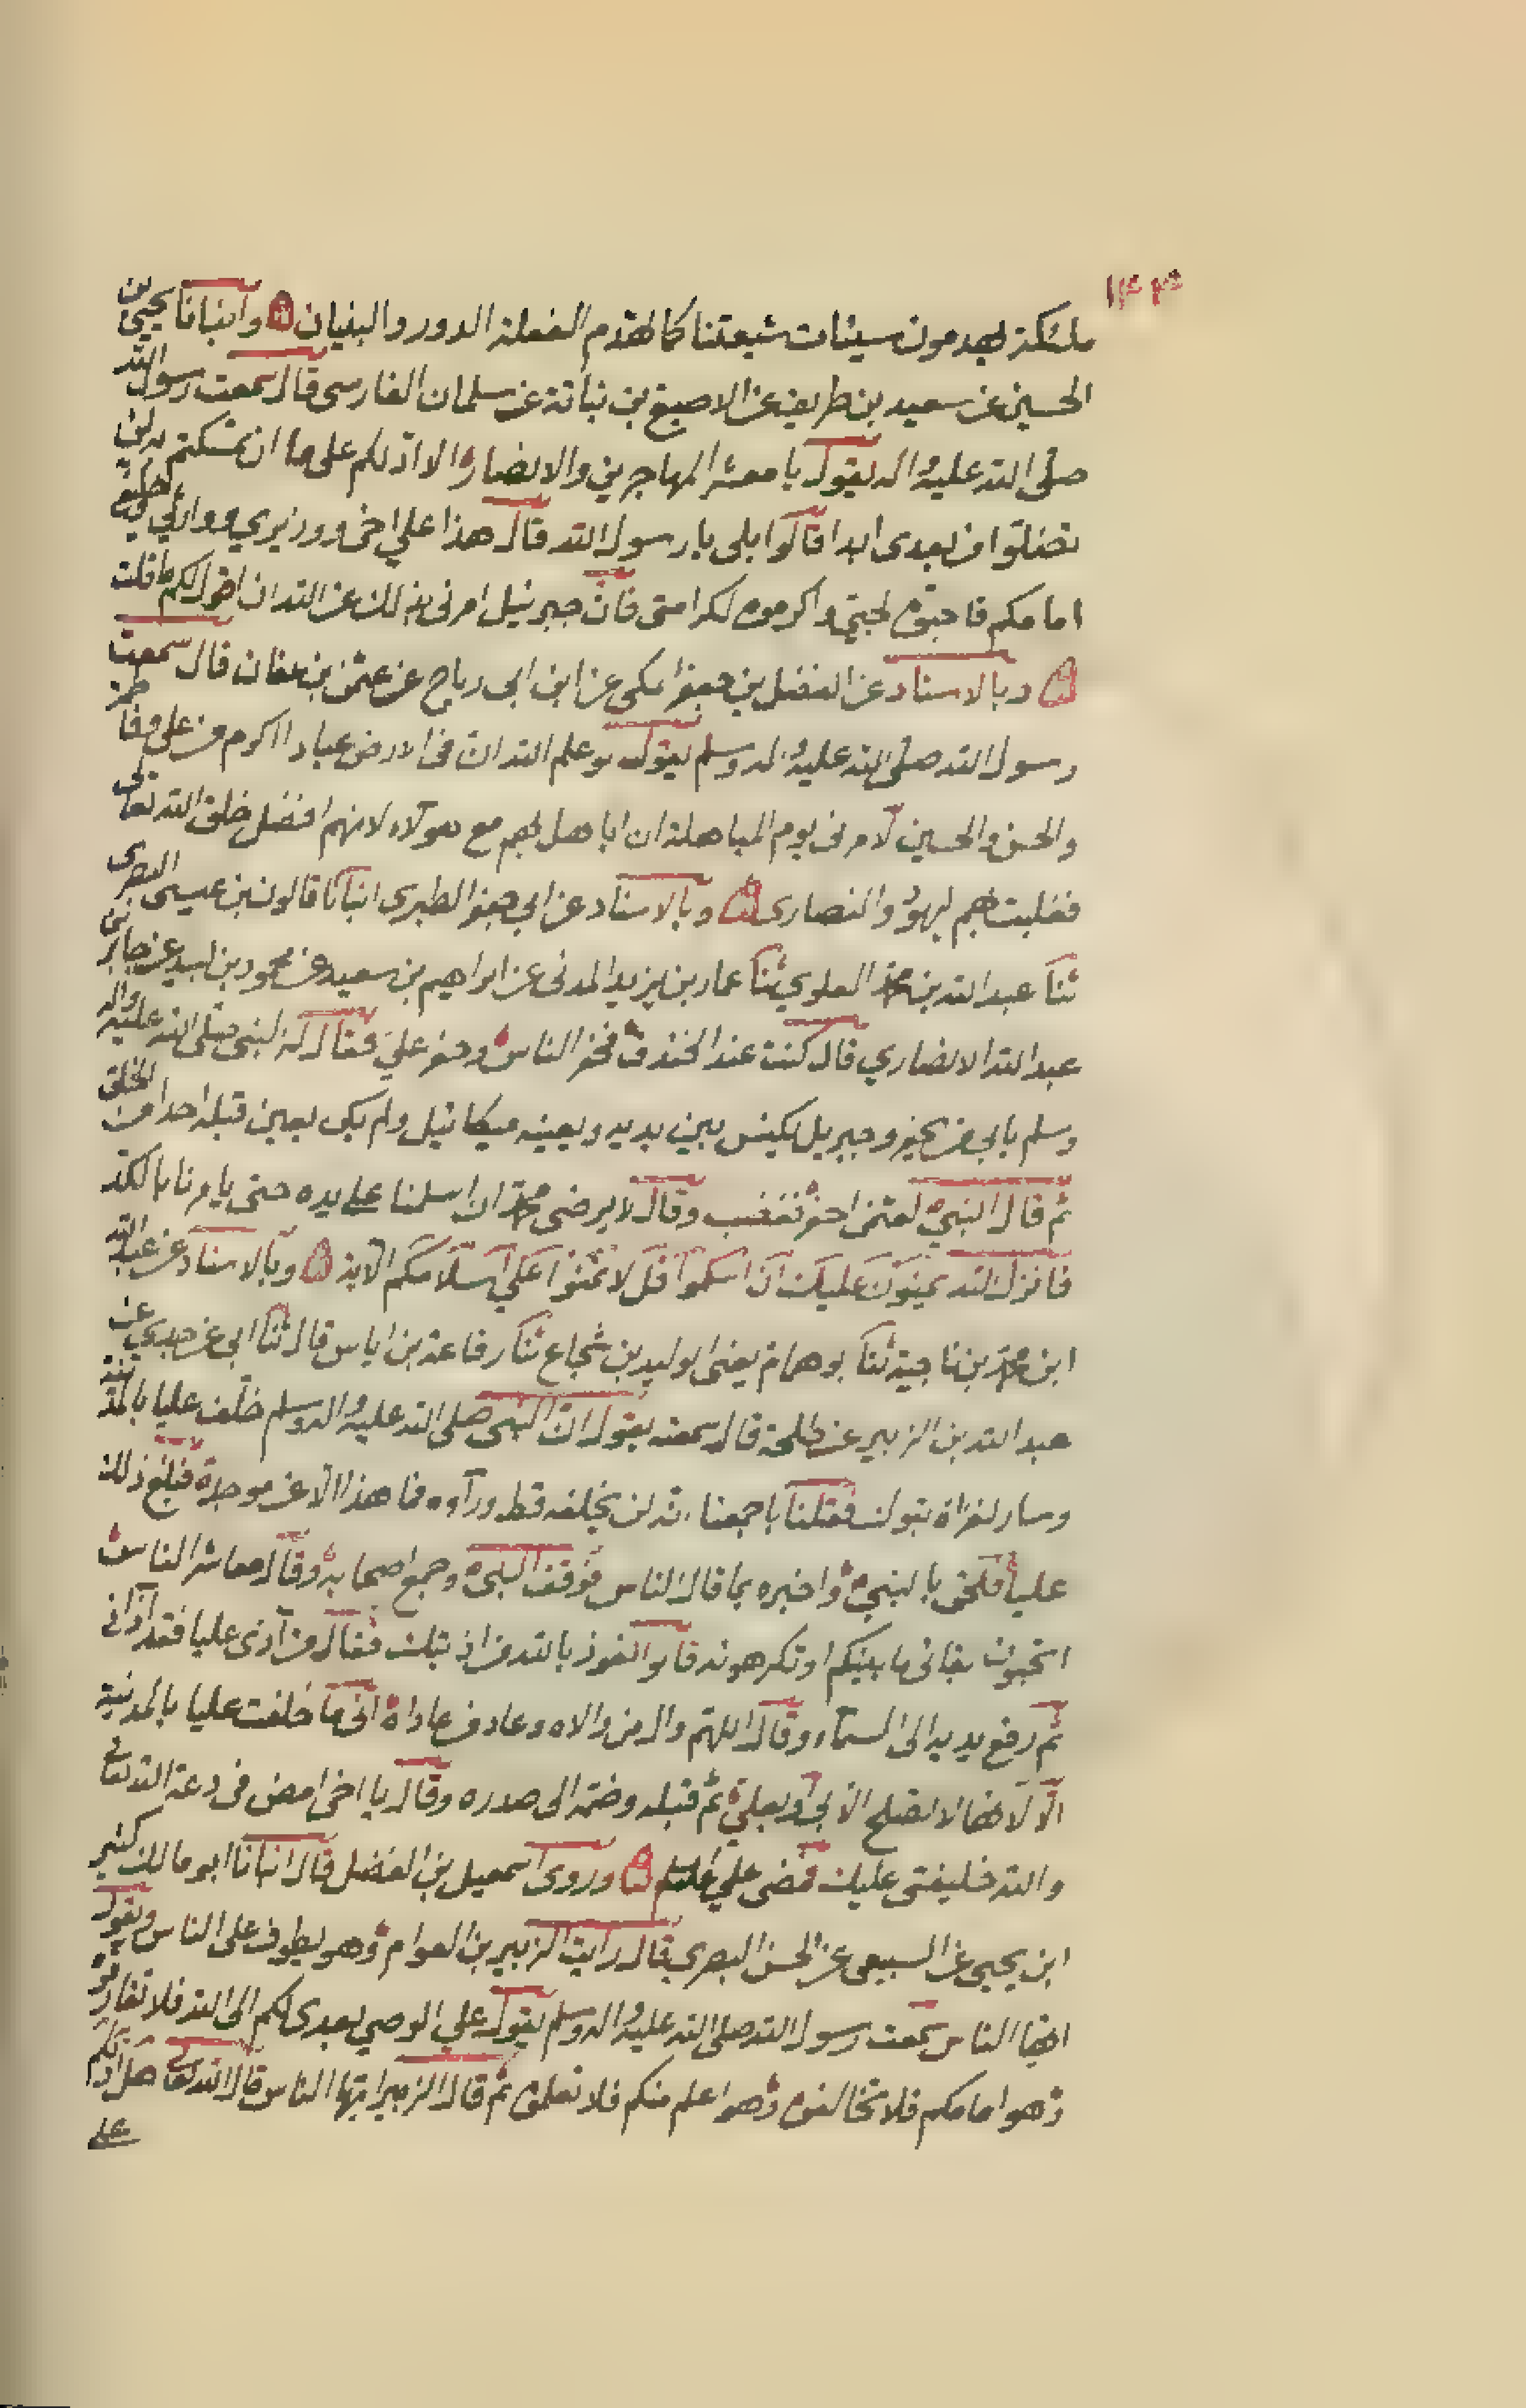 ١٤٣
ملئكة يهدمون سيئات شيعتنا كما تهدم الفعلة الدور والبنيان وانبانا يحيى بن
الحسين عن سعيد بن طريف عن الاصبغ بن نباتة عن سلمان الفارسى قال سمعت رسول الله
صلى الله عليه واله يقول يا معشر المهاجرين والانصار الا ادلكم على ما ان تمسكتم به لن
تضلوا من بعدى ابدا قالوا بلى يا رسول الله قال هذا علي اخى ووزيري ووارثي وخليفتى
امامكم فاحبوه لحبي واكرموه لكرامتى فان جبرئيل امرنى بذلك عن الله ان اقول لكم ما قلت
وبالاسناد عن الفضل بن جعفر المكى عن ابن ابى رباح عن عثمن بن عفان قال سمعت
رسول الله صلى الله عليه واله وسلم يقول لو علم الله ان فى الارض عبادا اكرم من على وفاطمة
والحسن والحسين لامرنى يوم المباهلة ان اباهل بهم مع هولاء لانهم افضل خلق الله تعالى
فغلبت بهم اليهود والنصارى وبالاسناد عن ابى جعفر الطبرى انبانا قالون بن عيسى البصرى
ثنا عبد الله بن محمد العلوي ثنا عمار بن يزيد المدنى عن ابراهيم بن سعيد عن محمود بن لبيد عن جابر بن
عبد الله الانصاري قال كنت عند الخندق فحفر الناس وحفر علي فقال له النبى صلى الله عليه واله
وسلم بابى من يحفر وجبريل يكنس بين يديه ويعينه ميكائيل ولم يكن يعين قبله احدا من الخلق
ثم قال النبي لعثمن احفر فغضب وقال لا يرضى محمد ان اسلمنا على يده حتى يامرنا بالكد
فانزل الله يمنون عليك ان اسلموا قل لا تمنوا علي اسلامكم الاية وبالاسناد عن عبد الله
ابن محمد بن ناجية ثنا ابو همام يعنى الوليد بن شجاع ثنا رفاعة بن اياس قال ثنا ابى عن جدي عن
عبد الله بن الزبير عن طلحة قال سمعته يقول ان النبى صلى الله عليه واله وسلم خلف عليا بالمدينة
وسار لغزاة تبوك فقلنا باجمعنا انه لن يخلفه قط وراءه فما هذا الا عن موجدة فبلغ ذلك
عليا فلحق بالنبي واخبره بما قال الناس فوقف النبى وجمع اصحابه وقال معاشر الناس
اتحبون بقائى ما بينكم او تكرهونه قالوا نعوذ بالله من اذيتك فقال من آذى عليا فقد آذانى
ثم رفع يديه الى السماء وقال اللهم وال من والاه وعاد من عاداه انى ما خلفت عليا بالمدينة
الا لانها لا تصلح الا بي او بعلي ثم قبله وضمه الى صدره وقال يا اخى امض فى دعة الله تعالى
والله خليفتى عليك فمضى علي وروى اسمعيل بن الفضل قال انبانا ابو مالك كثير
ابن يحيى عن السبيعى عن الحسن البصري قال رايت الزبير بن العوام وهو يطوف على الناس ويقول
ايها الناس سمعت رسول الله صلى الله عليه واله وسلم يقول علي الوصي بعدى لكم الى الله فلا تفارقوه
وهو امامكم فلا تخالفوه وهو اعلم منكم فلا تعلموه ثم قال الزبير ايها الناس قال الله تعالى هل ادلكم
على